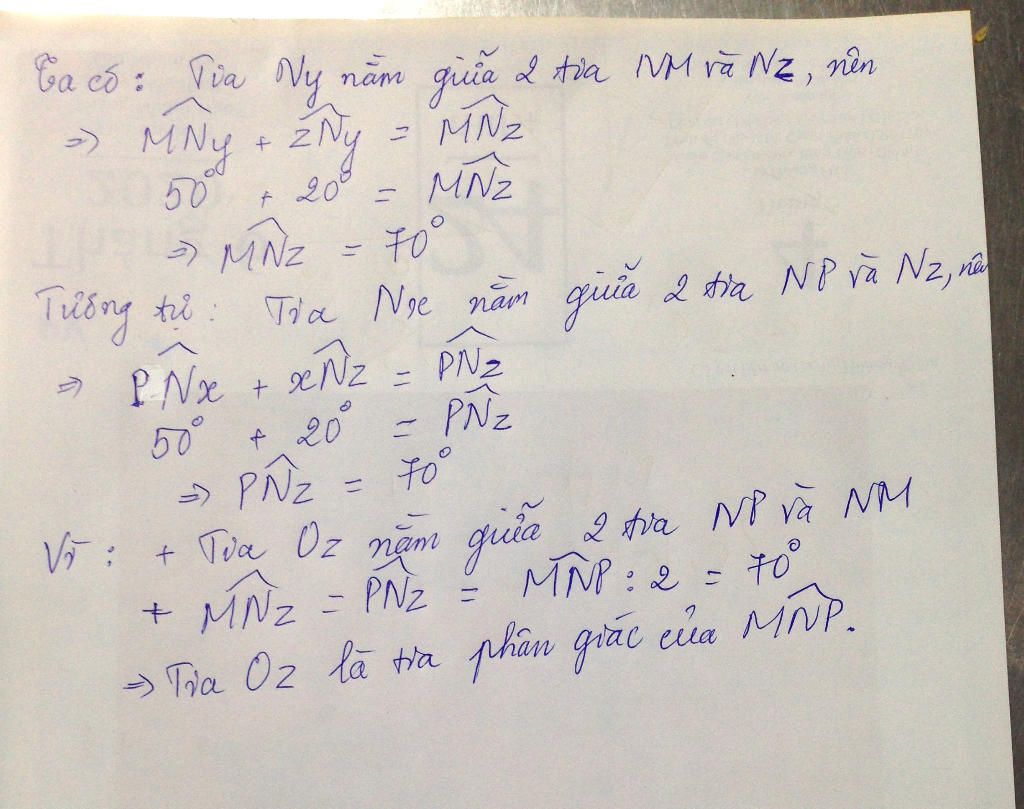 Ta có : Tia Ny nằm giữa 2 tia NM và Nz, nên
=> MNy + zNy = MNz
50° + 20° = MNz
=> MNz = 70°
Tương tự : Tia Nx nằm giữa 2 tia NP và Nz, nên
=> PNx + xNz = PNz
50° + 20° = PNz
=> PNz = 70°
Vì : + Tia Oz nằm giữa 2 tia NP và NM
+ MNz = PNz = MNP : 2 = 70°
=> Tia Oz là tia phân giác của MNP.